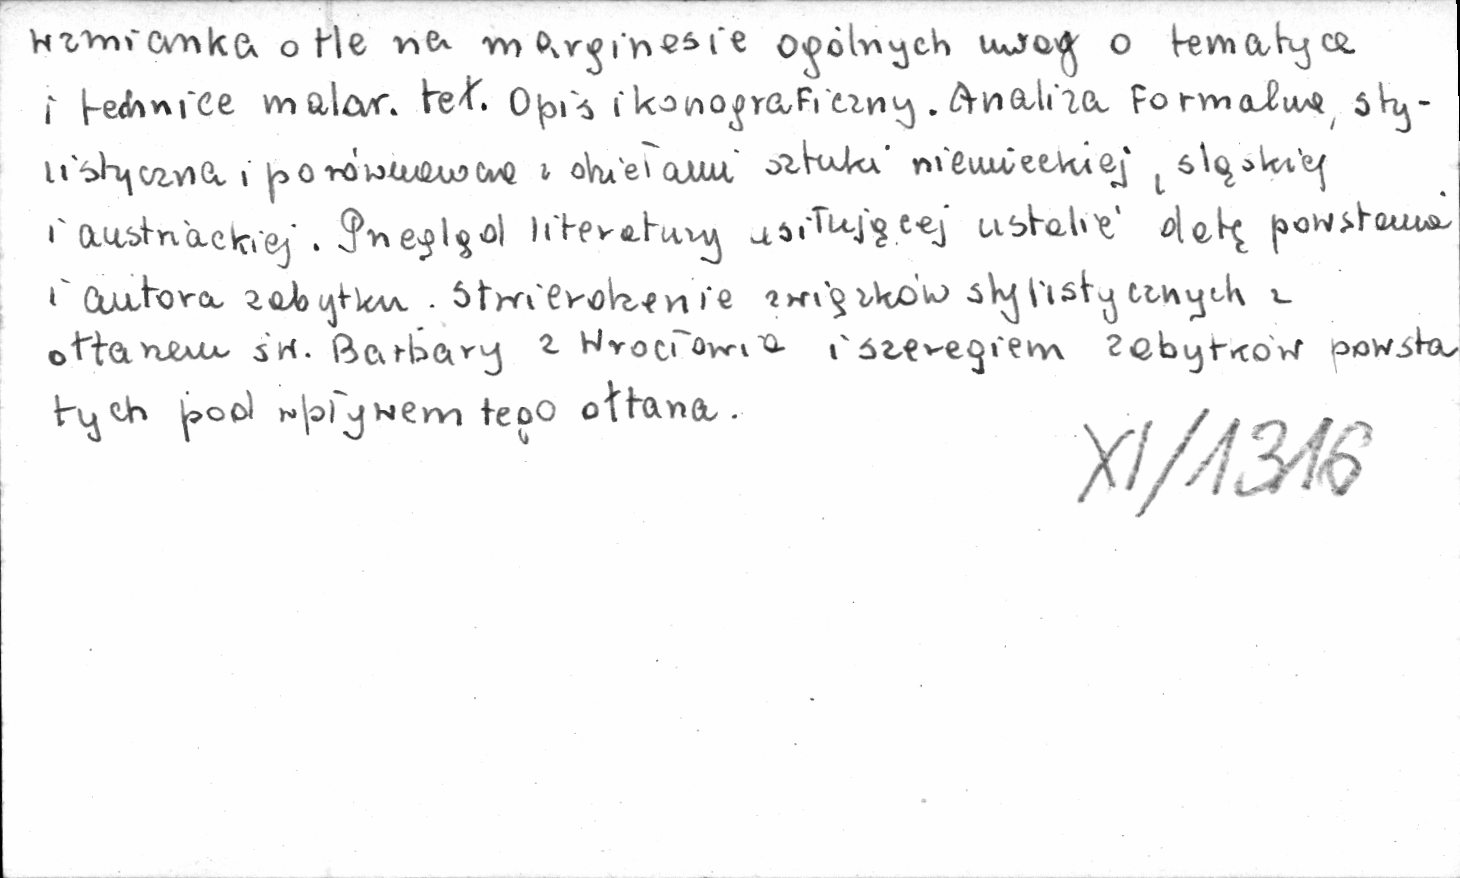 wzmianka o tle na marginesie ogólnych uwag o tematyce
i technice malar. teł. Opis ikonograficzny. Analiza formalna, sty-
listyczna i porównawcza z dziełami sztuki niemieckiej, śląskiej
i austriackiej. Przegląd literatury usiłującej ustalić datę powstania
i autora zabytku. Stwierdzenie związków stylistycznych z
ołtarzem św. Barbary z Wrocławia i szeregiem zabytków powsta
łych pod wpływem tego ołtarza.
XI/1316